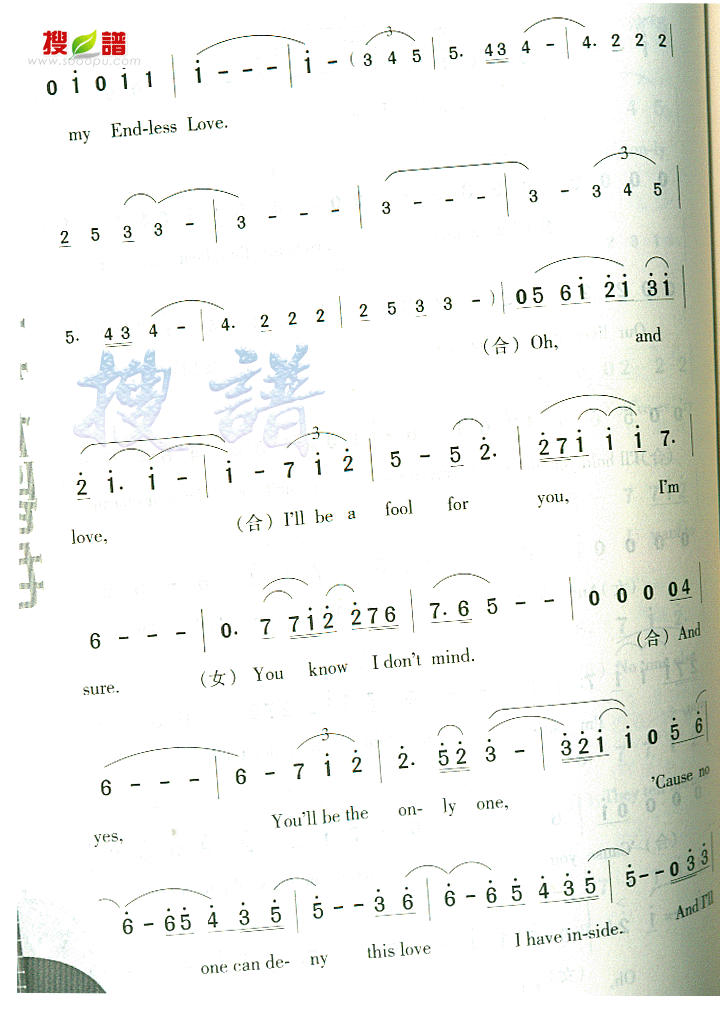 搜譜
www.sooopu.com
0 i 0 i 1 | i - - - | i - ( 3 4 5 | 5. 43 4 - | 4. 2 2 2 |
my End-less Love.
2 5 3 3 - | 3 - - - | 3 - - - | 3 - 3 4 5 |
5. 43 4 - | 4. 2 2 2 | 2 5 3 3 - ) | 05 6i 2i 3i |
(合) Oh, and
搜譜
2 i. i - | i - 7 i 2 | 5 - 5 2. | 27i i i 7. |
love, (合) I'll be a fool for you, I'm
6 - - - | 0. 7 7i2 276 | 7.6 5 - - | 0 0 0 04 |
sure. (女) You know I don't mind. (合) And
6 - - - | 6 - 7 i 2 | 2. 52 3 - | 32i i 0 5 6 |
yes, You'll be the on- ly one, 'Cause no
6 - 65 4 3 5 | 5 - - 3 6 | 6 - 6 5 4 3 5 | 5 - - 0 3 3 |
one can de- ny this love I have in-side. And I'll